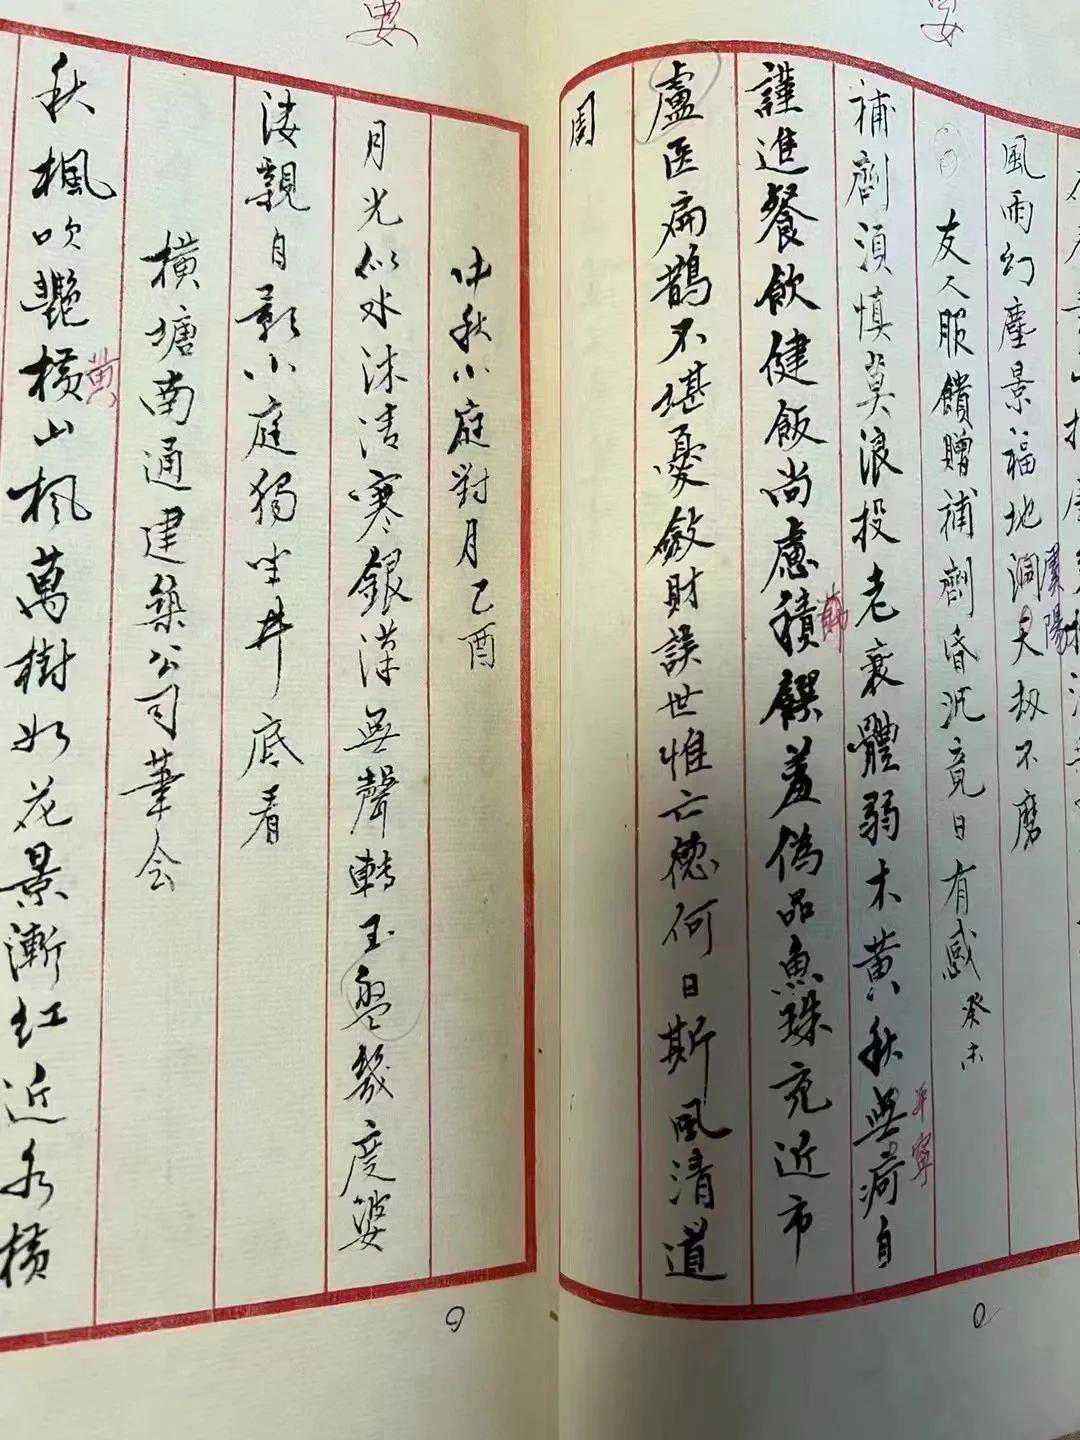 風雨幻塵景福地洞天劫不磨
虞陽
友人服饋贈補劑昏沉竟日有感 癸未
補劑須慎莫浪投老衰體弱木黃秋無痾自
平寧
謹進餐飲健飯尚慮積
饌羞偽品魚珠充近市
盧医扁鵲不堪憂斂財誤世惟亡德何日斯風清道
周
要
中秋小庭對月 乙酉
月光似水沐清寒銀漢無聲轉玉盤幾度婆
淒親自影小庭獨坐井底看
橫塘南通建築公司筆会
秋楓吹艷橫山楓萬樹如花景漸紅近水橫
黄
要
9